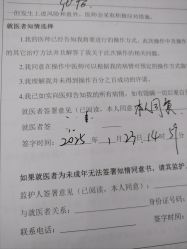 一旦发生上述风险和意外，医师会采取积极应对措施。
就医者知情选择
1.我的医师已经告知我将要进行的操作方式，此次操作中及操作
的其它治疗方法并且解答了我关于此次操作的相关问题。
2.我同意在操作中医师可以根据我的病情对预定的操作方式做
3.我理解我并未得到操作百分之百成功的许诺。
4.我已如实向医师告知我的所有病情，如有隐瞒一切后果自
就医者签署意见（已阅读，本人同意） 本人同意
就医者签
签字时间： 2025 年 1 月 23 日 14 时
如果就医者为未成年无法签署知情同意书，请其监护
监护人签署意见（已阅读，本人同意）：
与就医者关系： 身份证号码：
联系电话： 签字时间：